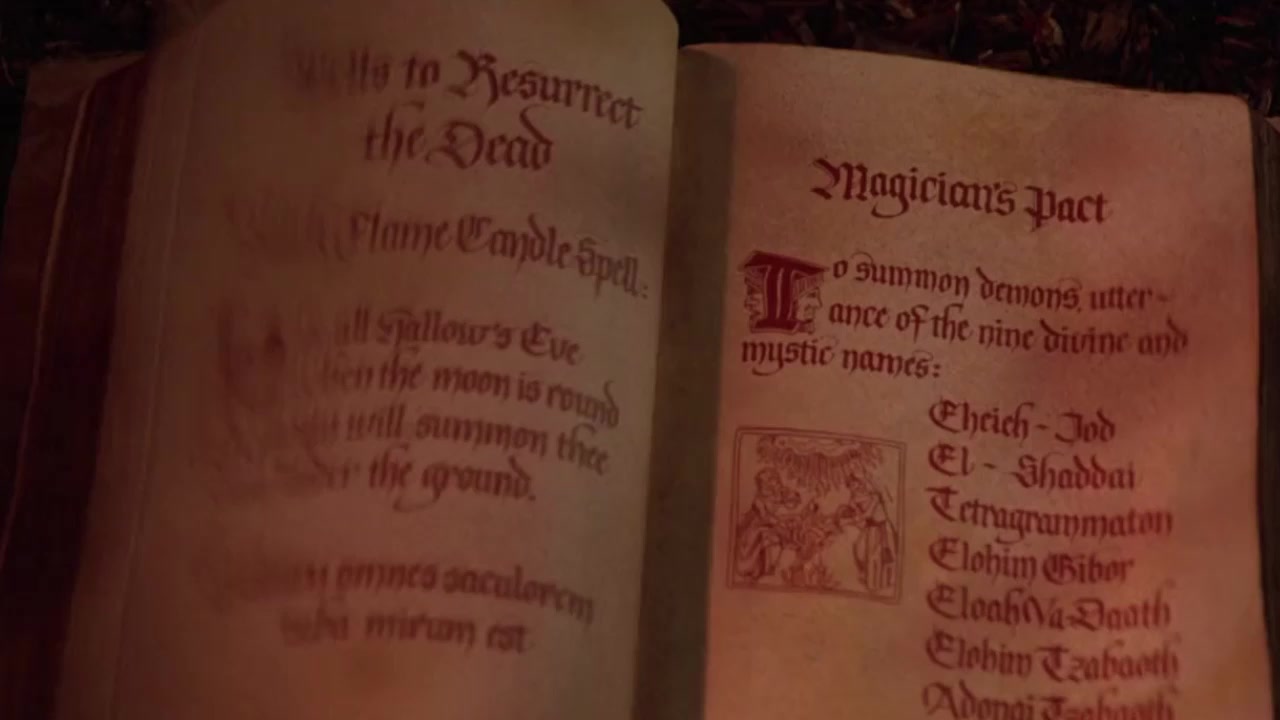 to Resurrect
the Dead
Flame Candle Spell:
Hallow's Eve
the moon is round
will summon thee
the ground.
omnes saculorem
mirum est
Magician's Pact
To summon demons, utter-
ance of the nine divine and
mystic names:
Eheieh - Iod
El - Shaddai
Tetragrammaton
Elohim Gibor
Eloah Va-Daath
Elohim Tzabaoth
Adonai Tzabaoth